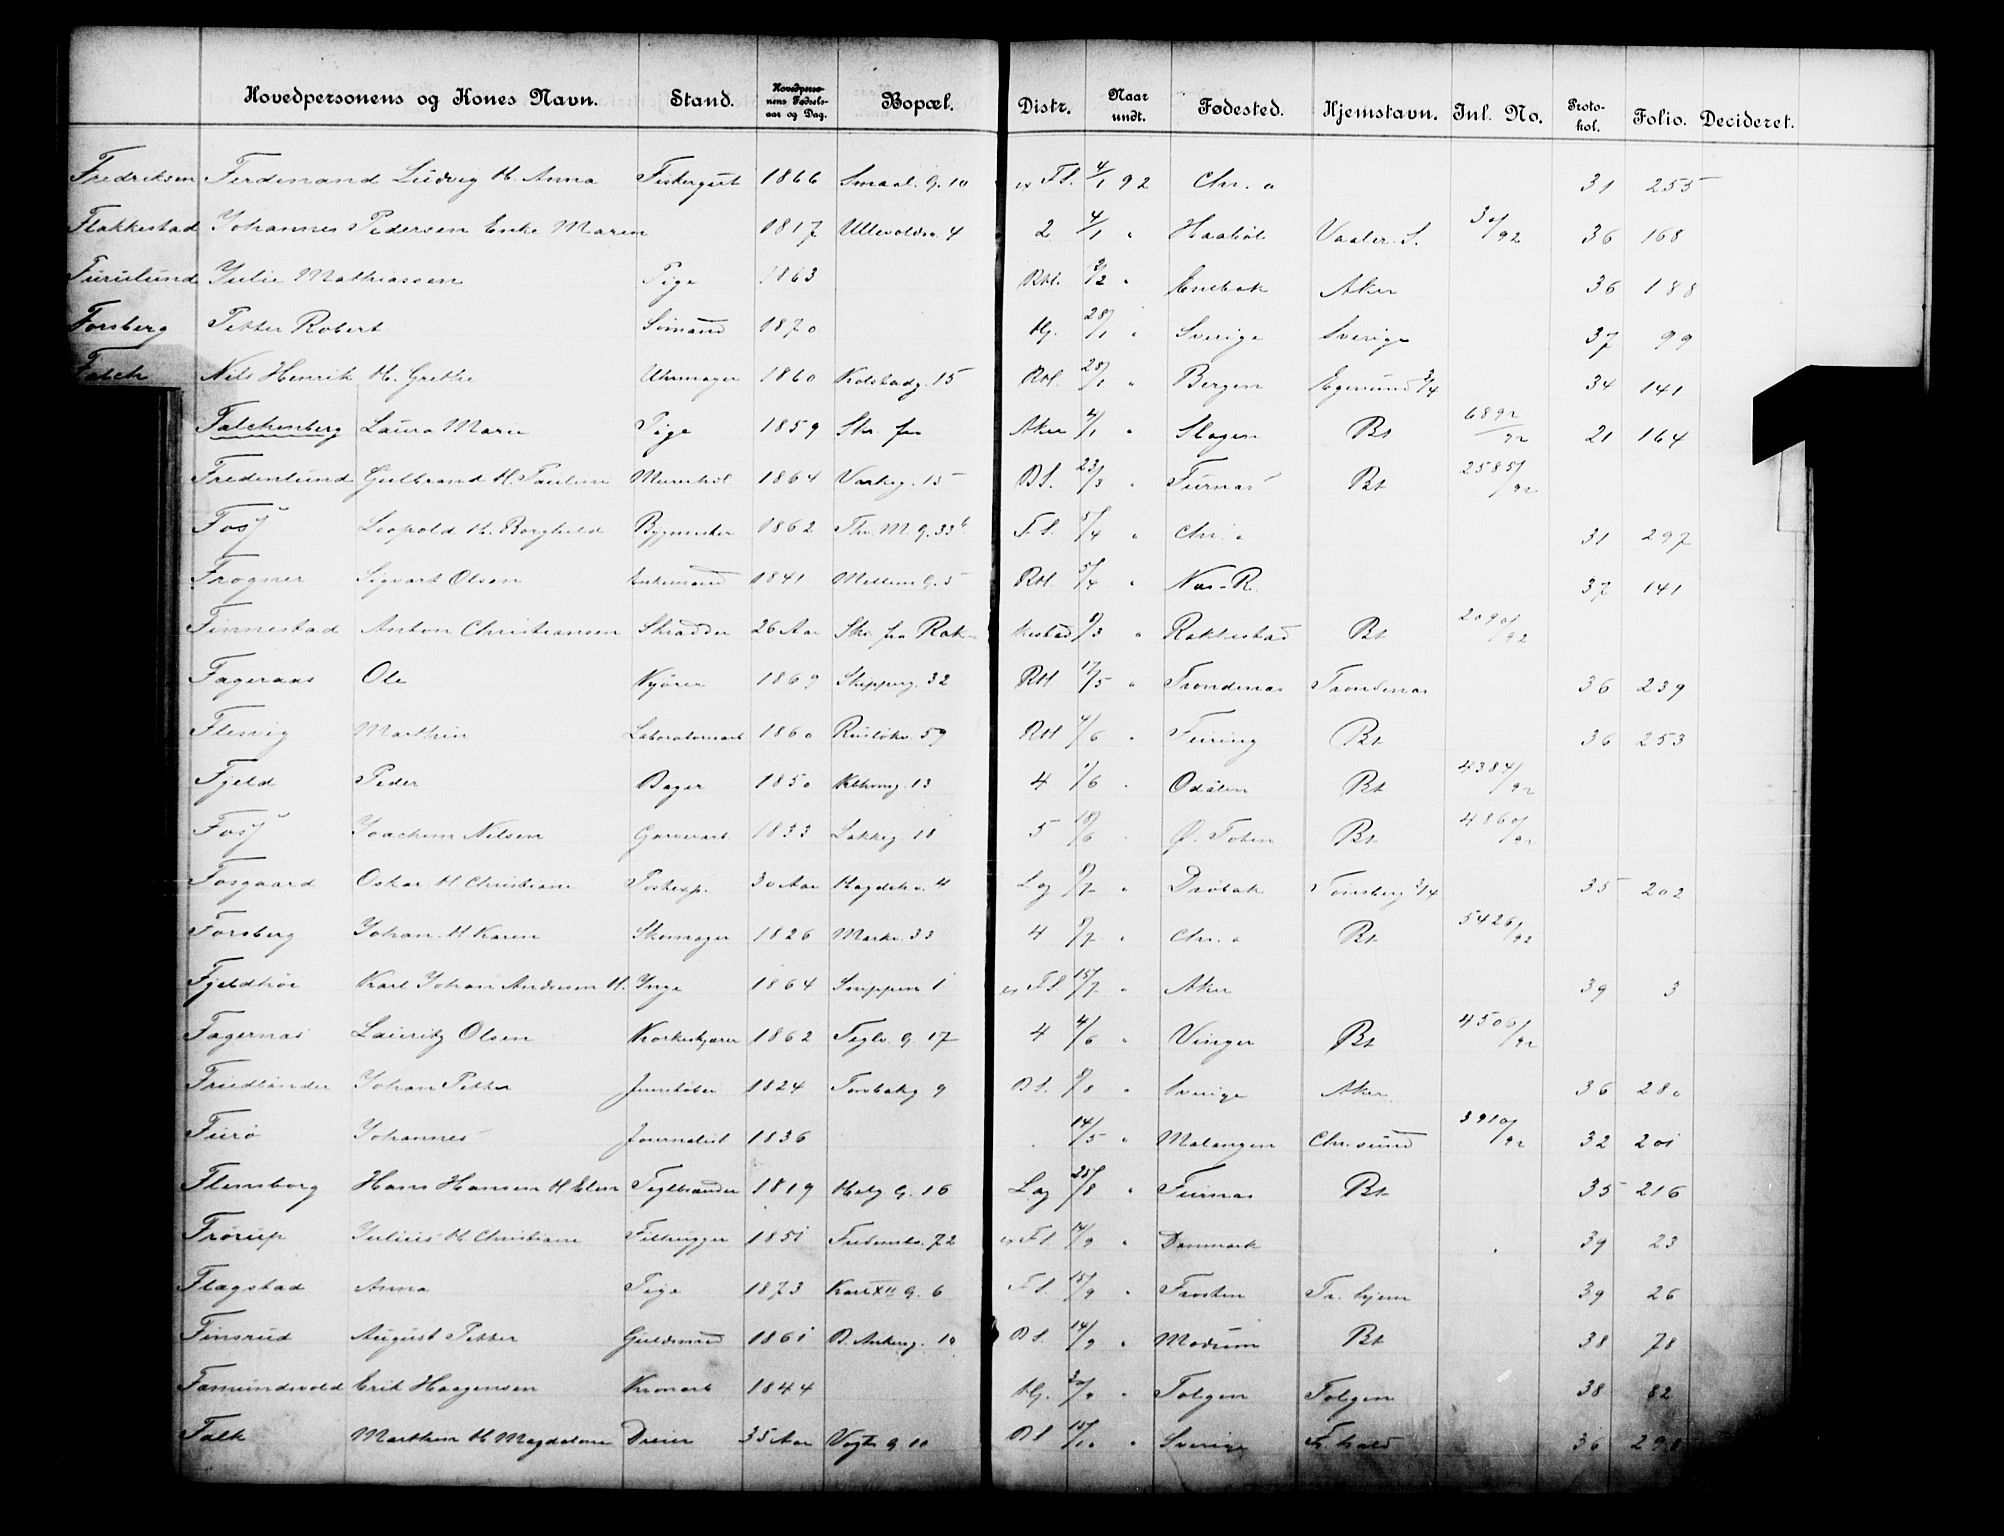 Hovedpersonens og Kones Navn. Stand. Hovedpersonens Fødselsaar og Dag. Bopæl. Distr. Naar undt. Fødested. Hjemstavn. Inl. No. Protokol. Folio. Decideret.
Fredriksen Ferdinand Ludvig H. Anna 1866 Smaal. G. 10 Fl. 4/1 92 Chr. a 31 255
Flakkestad Johannes Pedersen Enke Maren 1817 Ullevoldsv. 4 2 4/1 " Haabøl Vaaler S. 36 168
Furulund Julie Mathiassen Pige 1863 Rtl. 2 " Enebak Aker 36 188
Forsberg Petter Robert Sømand 1870 Hg. 28/1 " Sverige Sverige 37 99
Falch Nils Henrik H. Grethe Uhrmager 1860 Kolstadg. 15 Rtl. 28/1 " Bergen Egersund 34 141
Falchenberg Laura Marie Pige 1859 Skr. fra Aker 4/1 " Slagen Bt 6892/92 21 164
Fredenlund Gulbrand H. Pauline 1864 15 Bl. 23/3 " Furnæs Bt 2585/92
Foss Leopold H. Borghild Bygmester 1862 Thv. M. G. 33b Fl. 5/4 " Chr. a 31 297
Frogner Sigvart Olsen Enkemand 1841 Mellem G. 5 Rtl. 5/4 " Næs R. 37 141
Finnestad Anton Christiansen Skrædder 26 Aar Skr. fra Rakkestad 9/3 " Rakkestad Bt 2090/92
Fageraas Ole Kjører 1869 Skipperg. 32 Rtl 17/5 " Trondenæs Trondenæs 36 239
Marthin Laboratoriearb 1860 Ruseløkv. 59 Rtl 4/6 " Feiring Bt 36 253
Fjeld Peder Bager 1850 13 4 1/6 " Odalen Bt 4384/92
Foss Joachim Nilsen Garverarb 1833 Lakkeg. 18 5 18/6 Ø. Toten Bt 4860/92
Fosgaard Oskar H. Christiane Postexp. 30 Aar 4 Lg 9/7 " Drøbak Tønsberg 3/4 35 202
Forsberg Johan H. Karen Skomager 1826 Markv. 33 4 9/7 " Chr. a Bt 5426/92
Fjeldhøi Karl Johan Andersen H. Inga 1864 Snippen 1 Fl 15/7 " Aker 39 3
Fagernæs Lauritz Olsen Korkeskjærer 1862 Teglv. G. 17 4 4/6 " Vinger Bt 4506/92
Friedländer Johan Petter 1824 Torvbakg 9 Bl. 9/8 " Sverige Aker 36 280
Furø Johannes Journalist 1836 14/5 " Malangen Chr. sund 3910/92 32 201
Flensborg Hans Hansen H. Elen Teglbrænder 1819 Helg. G. 16 Lg 25/8 " Furnæs Bt 35 216
Frørup Julius H. Christiane Filhugger 1851 Fredensb. 72 Fl. 14/9 " Danmark 39 23
Flagstad Anna Pige 1873 Karl XII G. 6 Fl. 15/9 " Frosten Tr. hjem 39 26
Finsrud August Petter Guldsmed 1861 B. Ankerg. 10 Bl. 14/9 " Modum Bt 38 78
Famundsvold Erik Haagensen 1844 Hg. " Tolgen Tolgen 38 82
Falk Marthin H. Magdalene Dreier 35 Aar Vogts G. 10 Bl 15/10 " Sverige Fr. hald 36 298